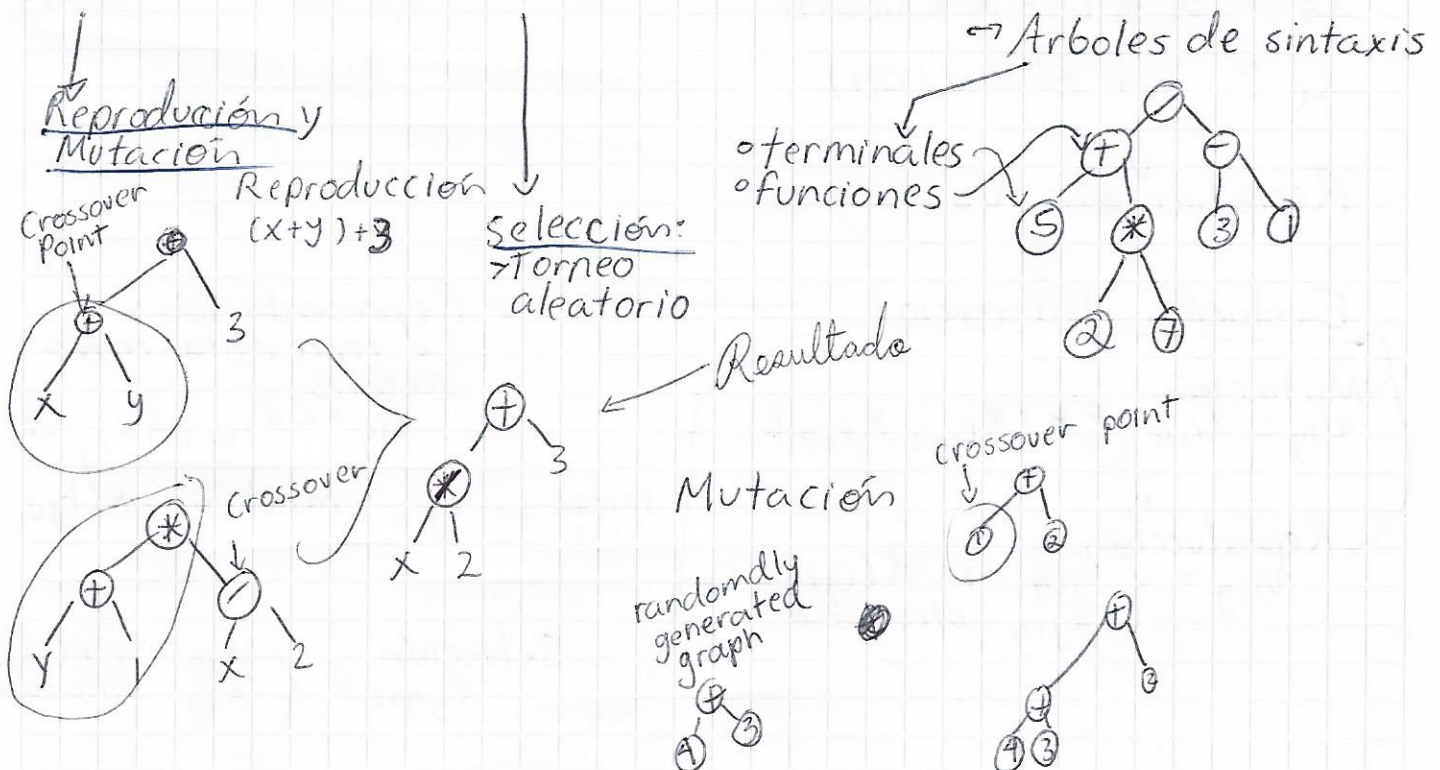 Reproducción y
Mutación
Reproducción
(x+y)+3
Crossover
Point
+
+
3
x
y
*
Crossover
+
/
y
1
x
2
Selección:
>Torneo
aleatorio
Resultado
+
3
x
2
↔ Arboles de sintaxis
° terminales
° funciones
/
+
-
5
*
3
1
2
7
Mutación
crossover point
+
1
2
randomdly
generated
graph
+
4
3
+
+
2
4
3